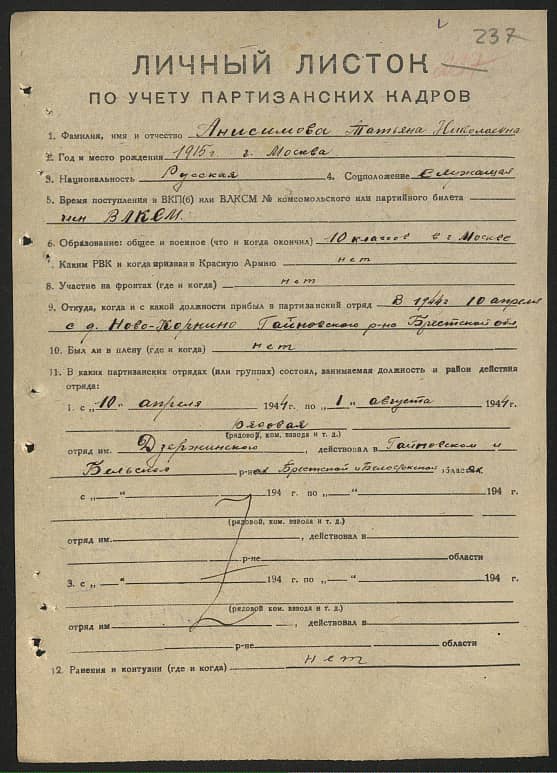 237
ЛИЧНЫЙ ЛИСТОК
ПО УЧЕТУ ПАРТИЗАНСКИХ КАДРОВ
1. Фамилия, имя и отчество Анисимова Татьяна Николаевна
2. Год и место рождения 1915 г г. Москва
3. Национальность Русская 4. Соцположение Служащая
5. Время поступления в ВКП(б) или ВЛКСМ № комсомольского или партийного билета
член ВЛКСМ
6. Образование: общее и военное (что и когда окончил) 10 классов в г. Москве
7. Каким РВК и когда призван в Красную Армию нет
8. Участие на фронтах (где и когда) нет
9. Откуда, когда и с какой должности прибыл в партизанский отряд В 1944 г 10 апреля
с д. Ново-Корнино Гайновского р-на Брестской обл
10. Был ли в плену (где и когда) нет
11. В каких партизанских отрядах (или группах) состоял, занимаемая должность и район действия
отряда:
1. с „10" апреля 1944 г. по „1" августа 1944 г.
Рядовая
(рядовой, ком. взвода и т. д.)
отряд им. Дзержинского, действовал в Гайновском и
Бельском р-нах Брестской и Белостокской областях
с „—" 194 г. по „—" 194 г.
(рядовой, ком. взвода и т. д.)
отряд им. , действовал в
р-не области
3. с „—" 194 г. по „—" 194 г.
(рядовой, ком. взвода и т. д.)
отряд им , действовал в
р-не области
12. Ранения и контузии (где и когда) нет